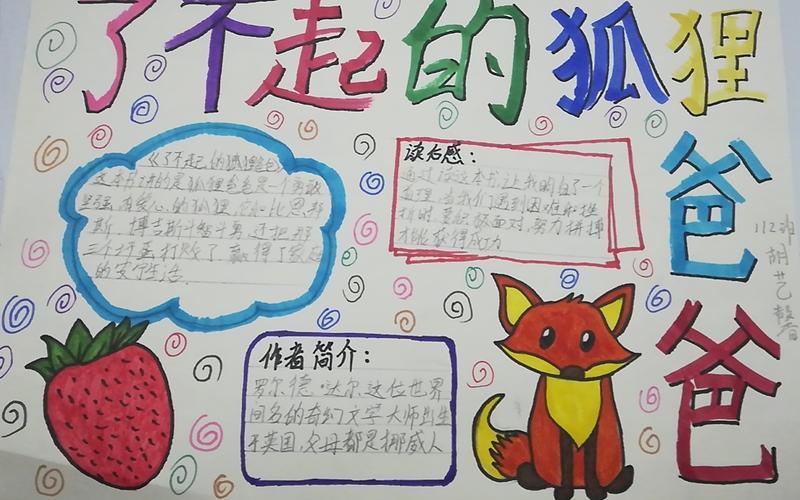 了不起的狐狸
爸
爸
《了不起的狐狸爸爸》
这本书讲的是狐狸爸爸是一个勇敢
坚强,有爱心的狐狸,它和比恩,邦
斯,博吉斯斗智斗勇,还把那
三个坏蛋打败了,赢得了家庭
的安宁生活.
读后感:
通过读这本书,让我明白了一个
道理,当我们遇到困难和挫
折时,要积极面对,努力拼搏
才能获得成功
作者简介:
罗尔德·达尔这位世界
闻名的奇幻文字大师出生
于英国,父母都是挪威人
112班
胡艺馨